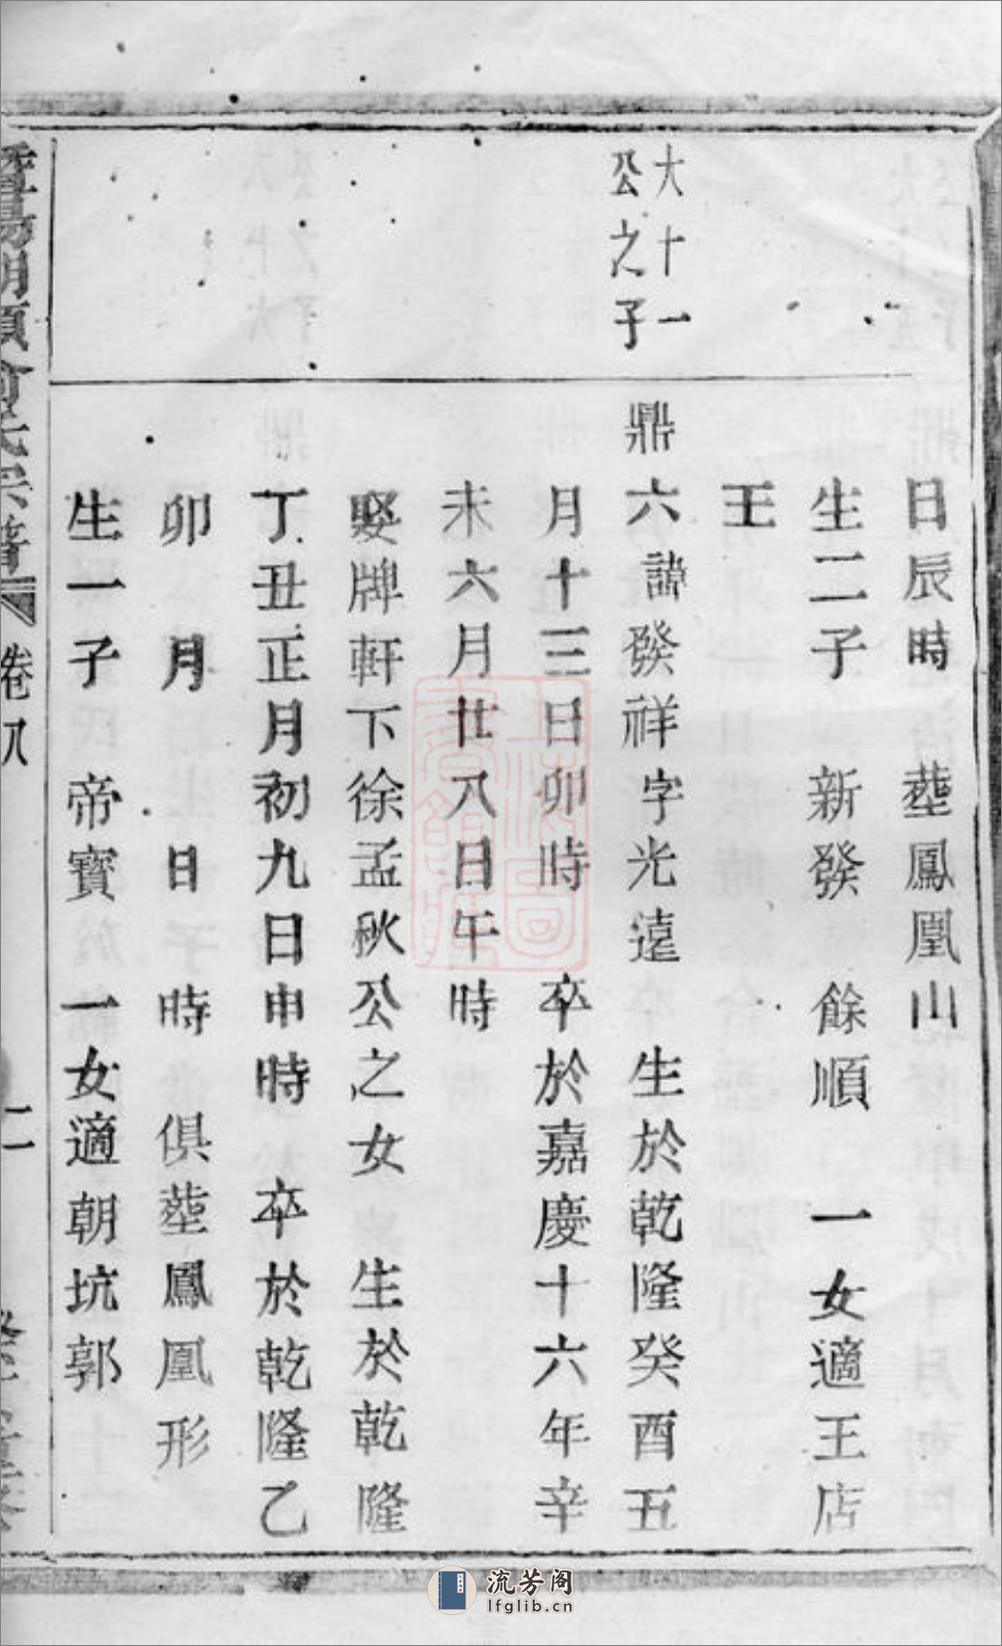 日辰時　塟鳳凰山
生二子　新發　餘順　一女適王店
王
大十一
公之子
鼎六諱發祥字光遠　生於乾隆癸酉五
月十三日卯時　卒於嘉慶十六年辛
未六月廿八日午時
娶牌軒下徐孟秋公之女　生於乾隆
丁丑正月初九日申時　卒於乾隆乙
卯　月　　日　時　俱塟鳳凰形
生一子　帝寶　一女適朝坑郭
卷八　二
流芳阁
lfglib.cn